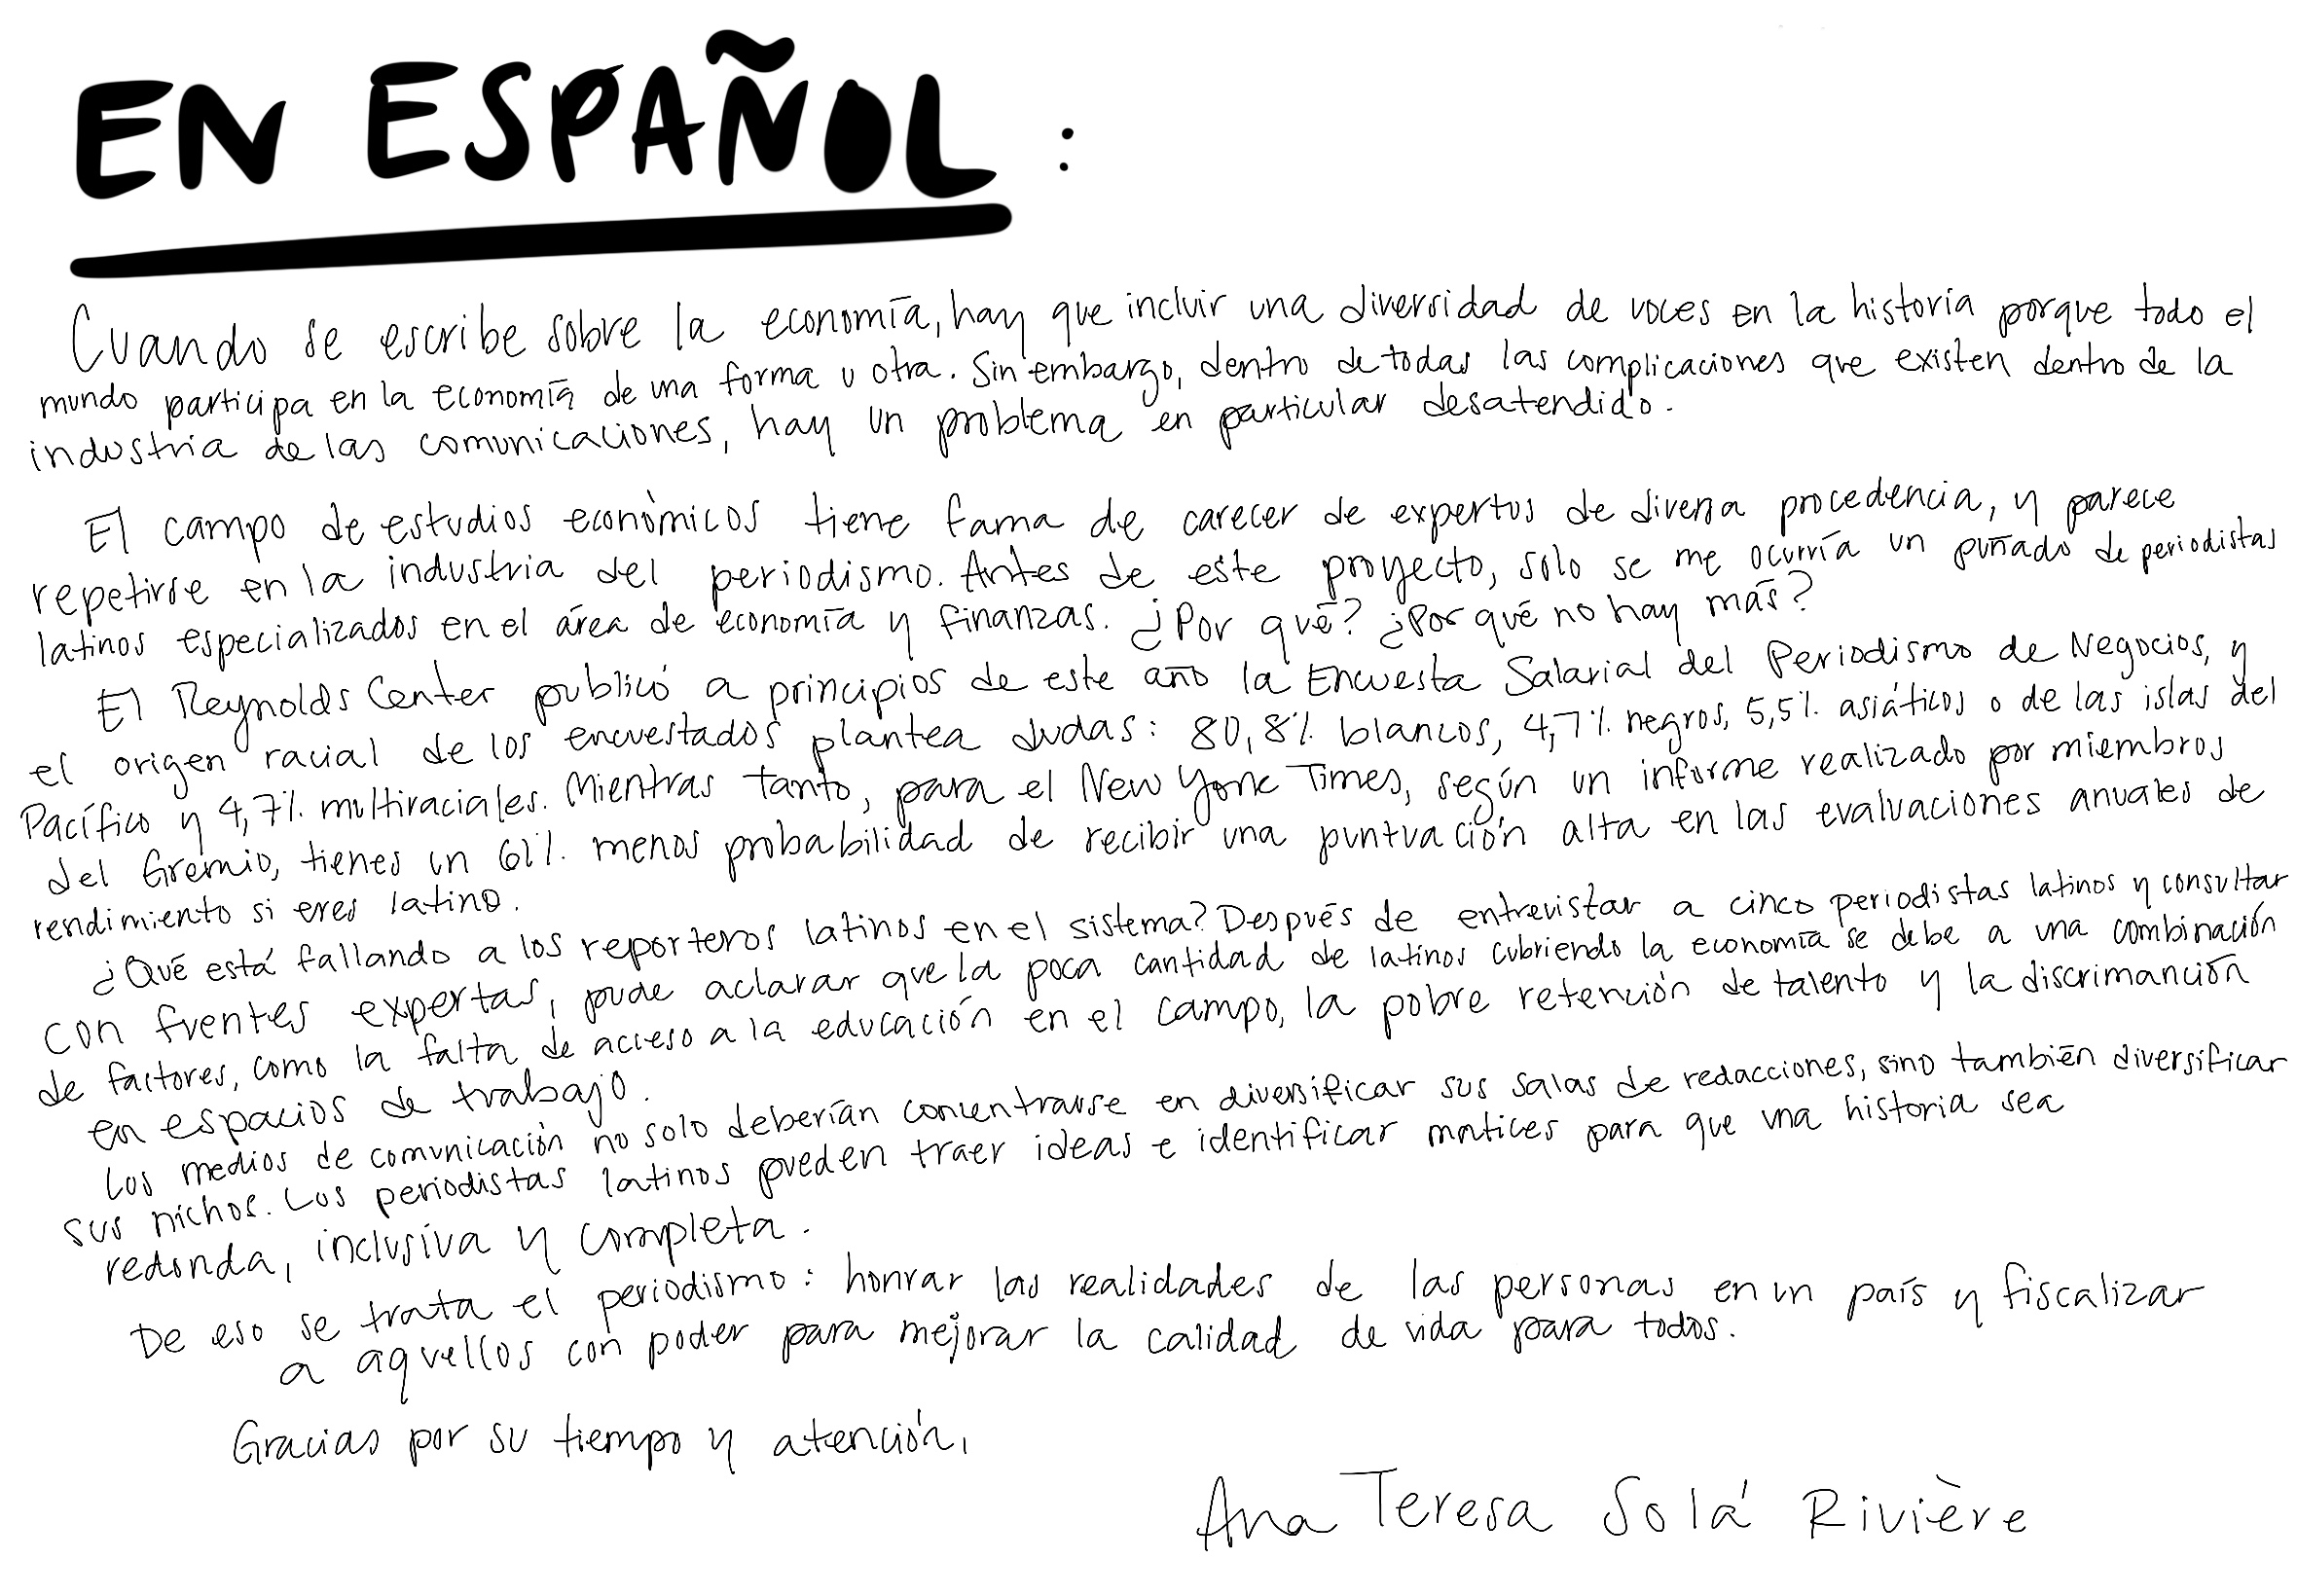 EN ESPAÑOL:
Cuando se escribe sobre la economía, hay que incluir una diversidad de voces en la historia porque todo el
mundo participa en la economía de una forma u otra. Sin embargo, dentro de todas las complicaciones que existen dentro de la
industria de las comunicaciones, hay un problema en particular desatendido.
El campo de estudios económicos tiene fama de carecer de expertos de diversa procedencia, y parece
repetirse en la industria del periodismo. Antes de este proyecto, solo se me ocurría un puñado de periodistas
latinos especializados en el área de economía y finanzas. ¿Por qué? ¿Por qué no hay más?
El Reynolds Center publicó a principios de este año la Encuesta Salarial del Periodismo de Negocios, y
el origen racial de los encuestados plantea dudas: 80,8% blancos, 4,7% negros, 5,5% asiáticos o de las islas del
Pacífico y 4,7% multiraciales. Mientras tanto, para el New York Times, según un informe realizado por miembros
del Gremio, tienes un 61% menos probabilidad de recibir una puntuación alta en las evaluaciones anuales de
rendimiento si eres latino.
¿Qué está fallando a los reporteros latinos en el sistema? Después de entrevistar a cinco periodistas latinos y consultar
con fuentes expertas, pude aclarar que la poca cantidad de latinos cubriendo la economía se debe a una combinación
de factores, como la falta de acceso a la educación en el campo, la pobre retención de talento y la discrimanción
en espacios de trabajo.
Los medios de comunicación no solo deberían concentrarse en diversificar sus salas de redacciones, sino también diversificar
sus nichos. Los periodistas latinos pueden traer ideas e identificar matices para que una historia sea
redonda, inclusiva y completa.
De eso se trata el periodismo: honrar las realidades de las personas en un país y fiscalizar
a aquellos con poder para mejorar la calidad de vida para todos.
Gracias por su tiempo y atención,
Ana Teresa Solá Rivière